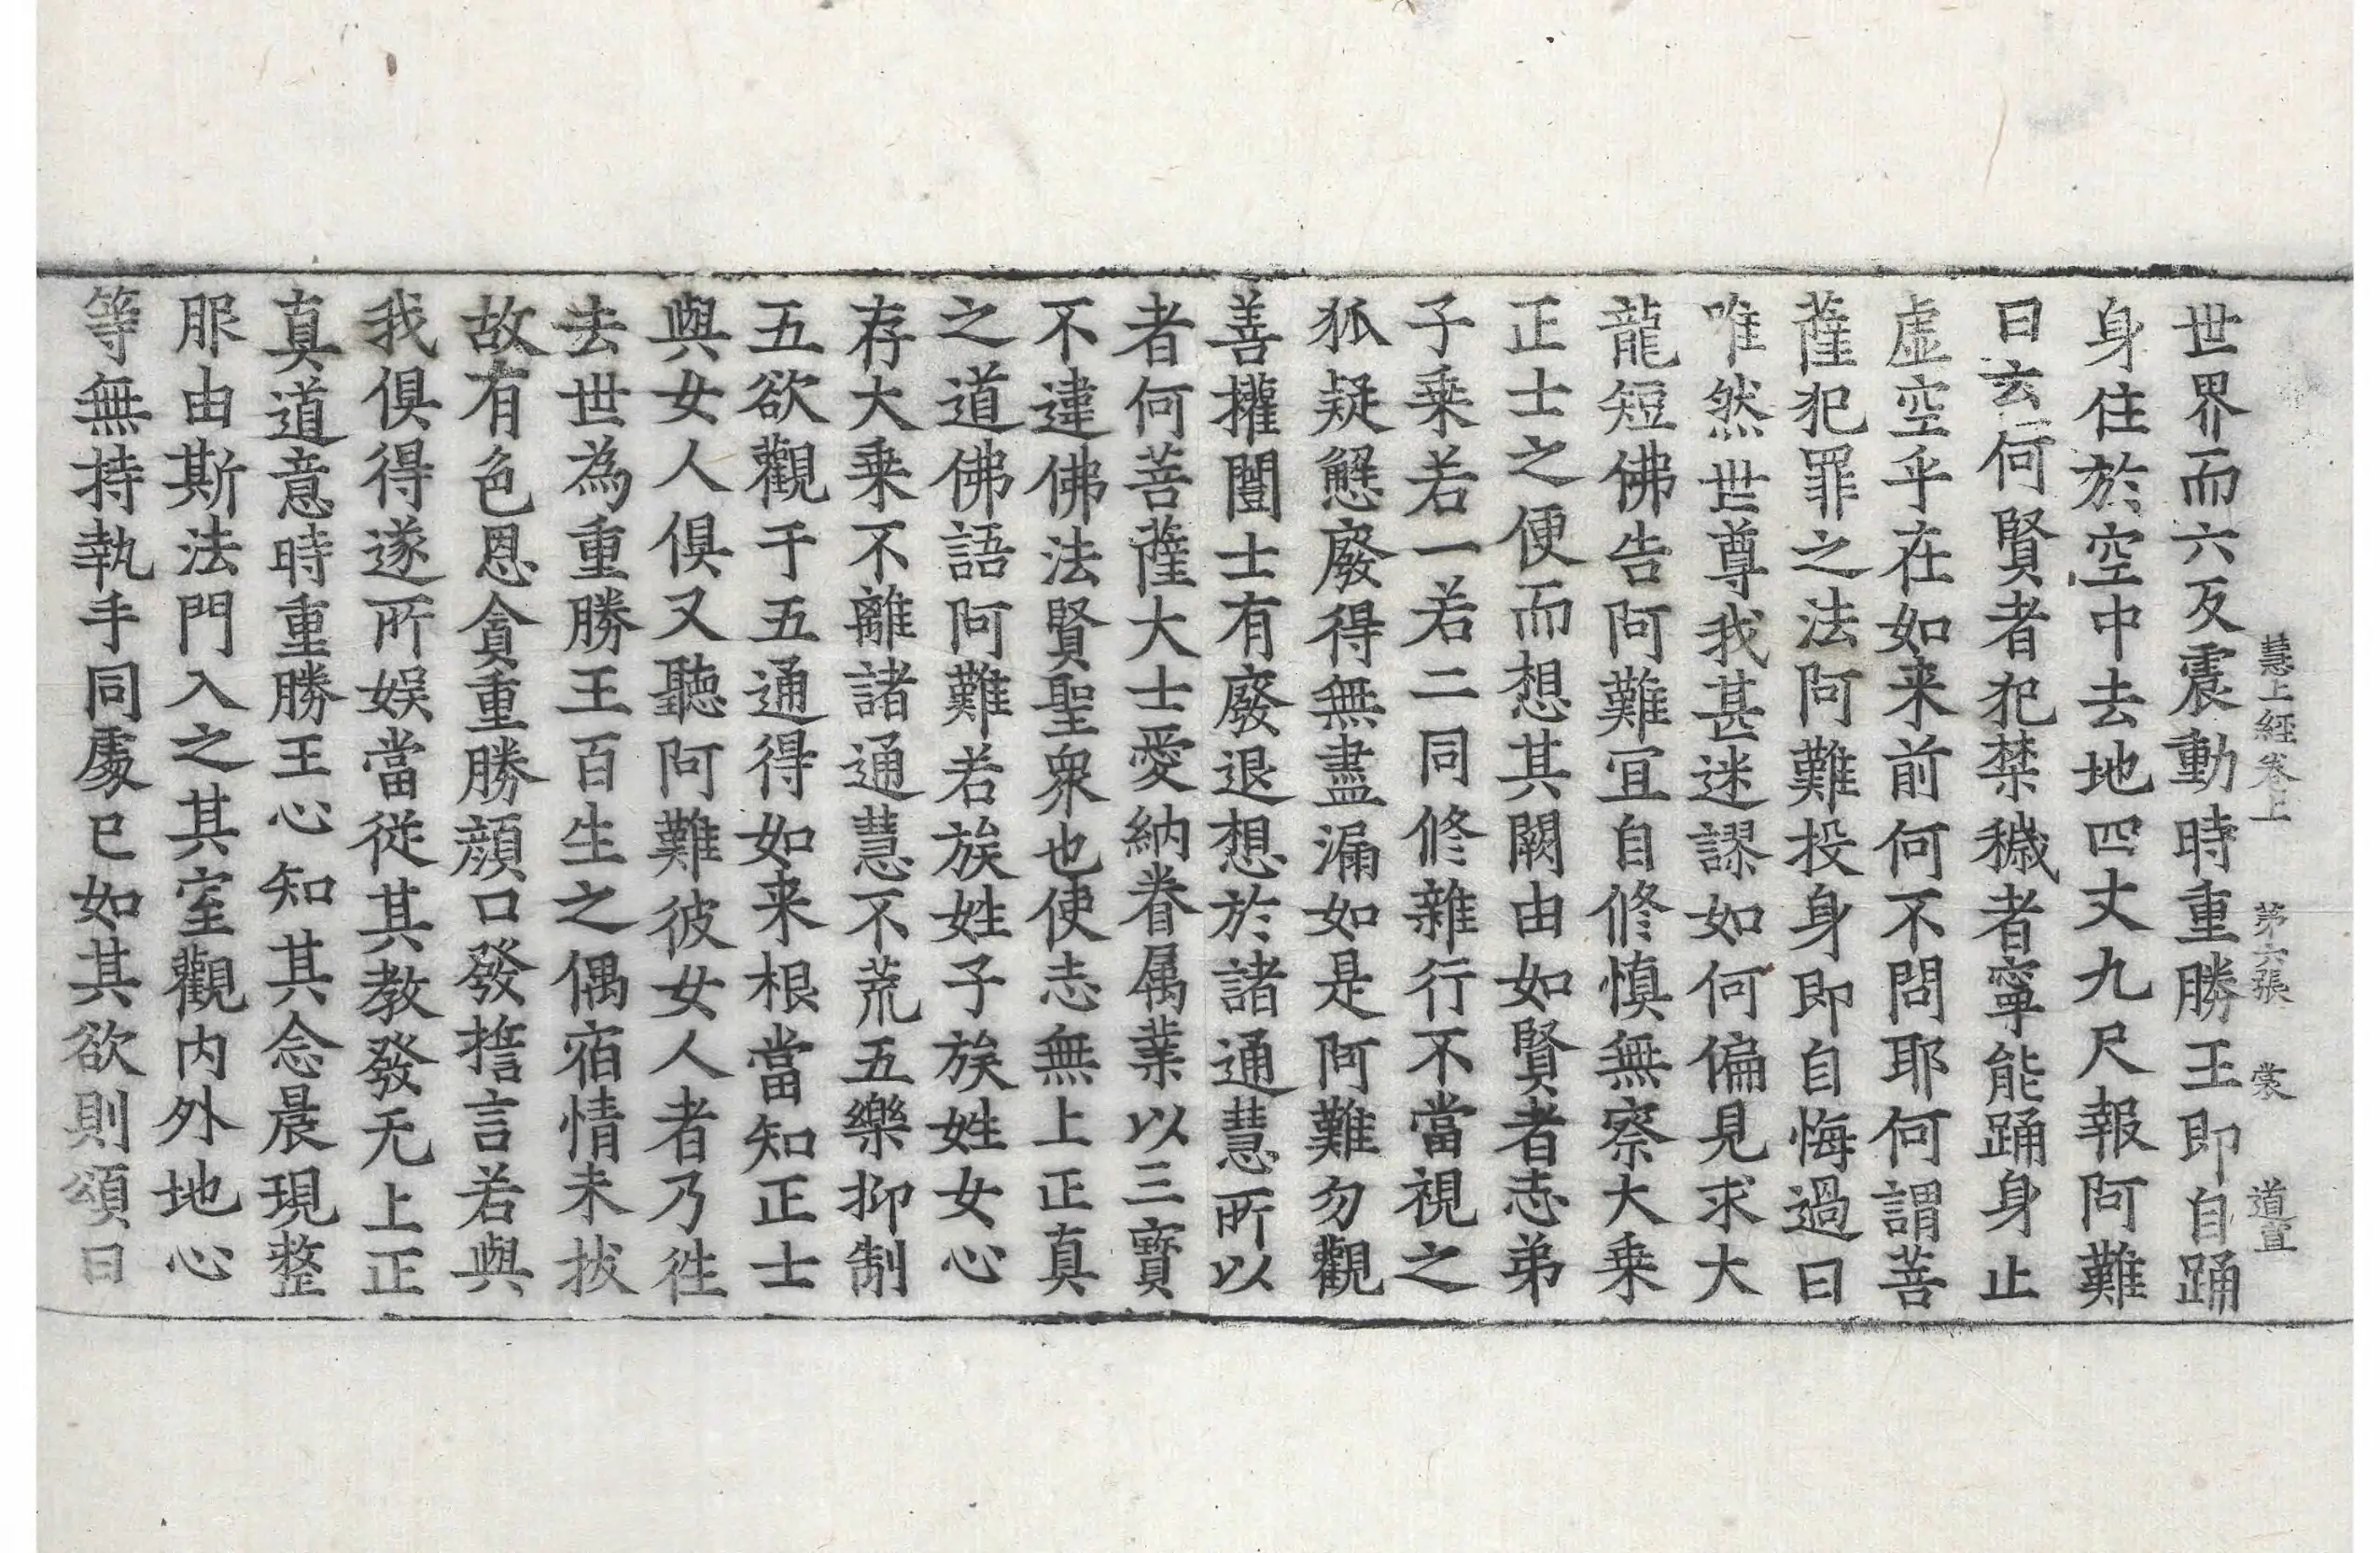 慧上經卷上 苐六張 裳 道宣
世界而六反震動時重勝王即自踊
身住於空中去地四丈九尺報阿難
曰云何賢者犯禁穢者寧能踊身止
虛空乎在如来前何不問耶何謂菩
薩犯罪之法阿難投身即自悔過曰
唯然世尊我甚迷謬如何偏見求大
龍短佛告阿難宜自修慎無察大乗
正士之便而想其闕由如賢者志弟
子乗若一若二同修雜行不當視之
狐疑懸廢得無盡漏如是阿難勿觀
善權闓士有廢退想於諸通慧所以
者何菩薩大士愛納眷属業以三寳
不違佛法賢聖衆也使志無上正真
之道佛語阿難若族姓子族姓女心
存大乗不離諸通慧不荒五樂抑制
五欲觀于五通得如来根當知正士
與女人俱又聽阿難彼女人者乃徃
去世為重勝王百生之偶宿情未拔
故有色恩貪重勝顔口發擔言若與
我俱得遂所娱當従其教發无上正
真道意時重勝王心知其念晨現整
服由斯法門入之其室觀内外地心
等無持執手同處已如其欲則頌曰